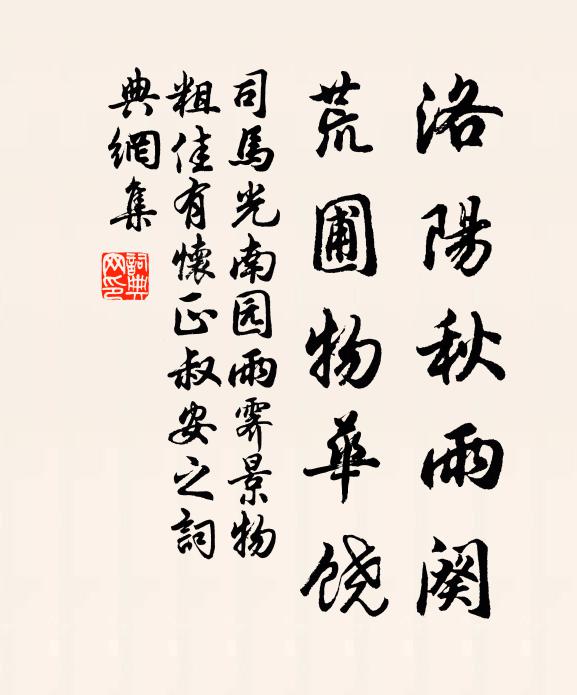 洛陽秋雨闋
荒圃物華饶
司馬光南园雨霁景物
粗佳有懷正叔安之詞
典網集
詞典网印